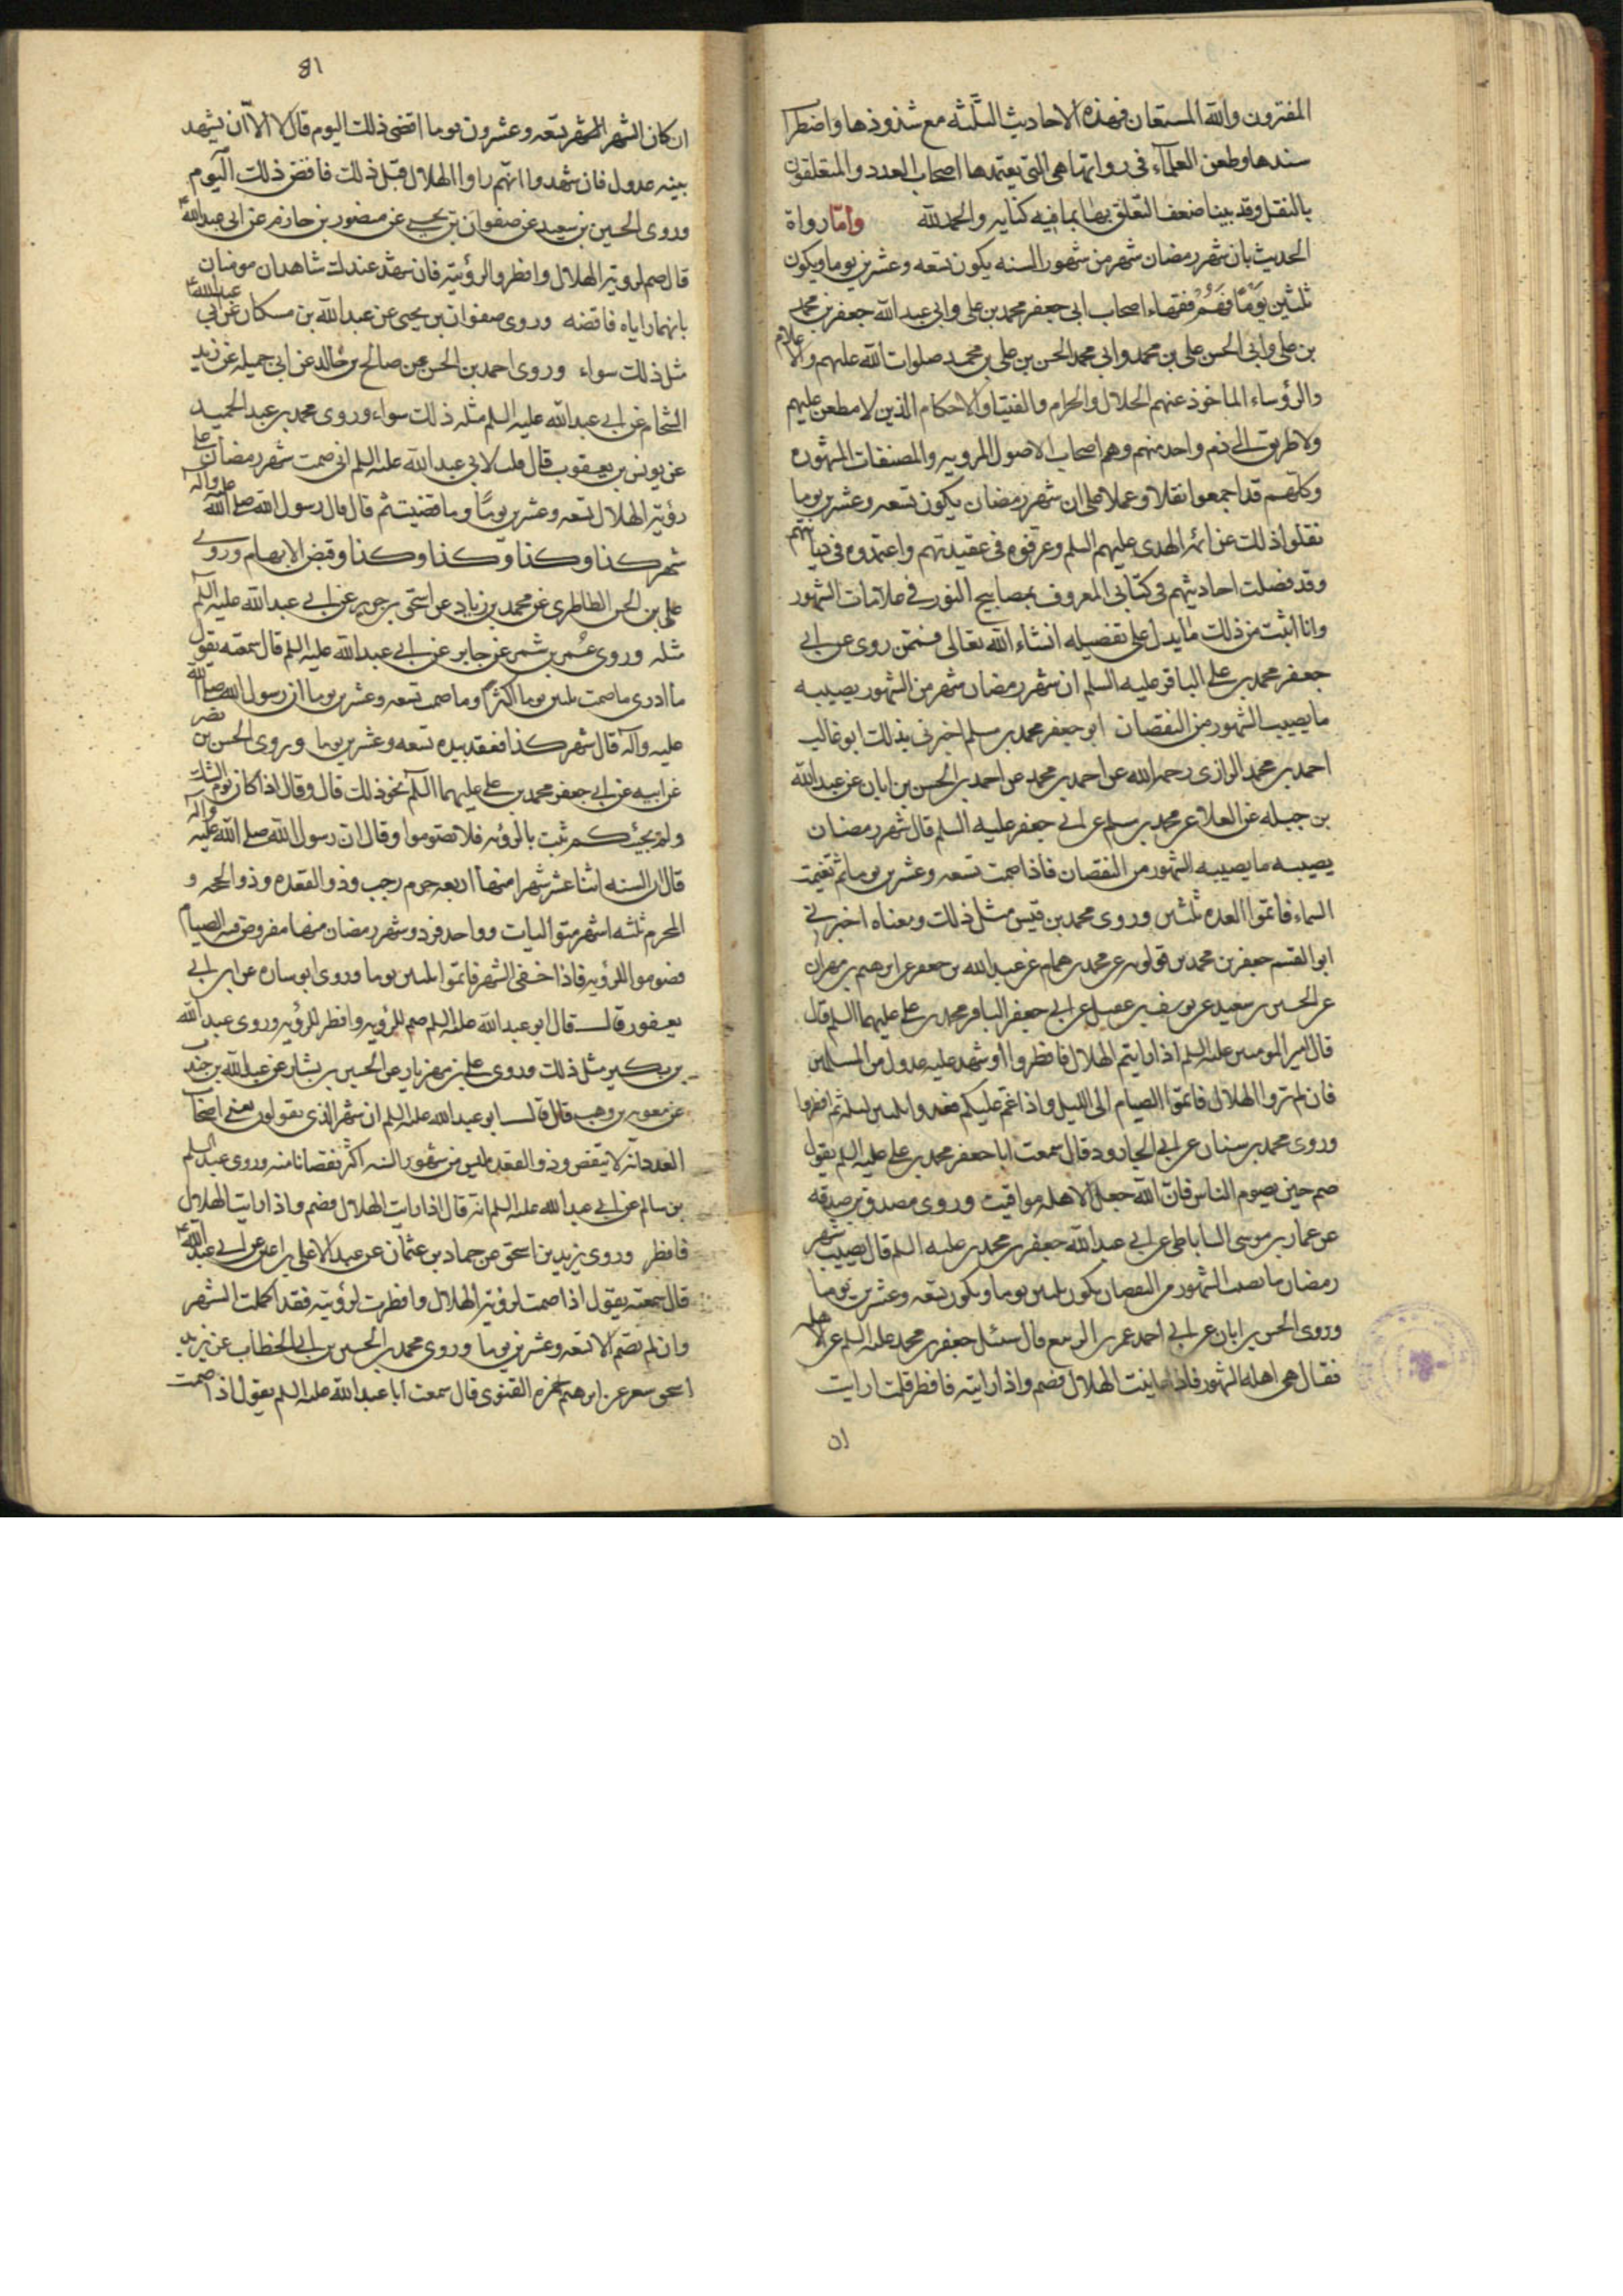 المفترون والله المستعان فهذه الاحاديث الثلثه مع شذوذها واضطراب
سندها وطعن العلمآء فى رواتها هى التى يعتمدها اصحاب العدد والمتعلقون
بالنقل وقد بينا ضعف التعلق بها بما فيه كفايه والحمد لله وامّا رواة
الحديث بان شهر رمضان شهر من شهور السنه يكون تسعه وعشرين يوما ويكون
ثلثين يومًا فهم فقهاء اصحاب ابى جعفر محمد بن على وابى عبد الله جعفر بن محمد
بن على وابى الحسن على بن محمد وابى محمد الحسن بن على بن محمد صلوات الله عليهم والاعلام
والرؤساء الماخوذ عنهم الحلال والحرام والفتيا والاحكام الذين لا مطعن عليهم
ولا طريق الى ذم واحد منهم وهم اصحاب الاصول المرويه والمصنفات المشهوره
وكلهم قد اجمعوا نقلا وعملا على ان شهر رمضان يكون تسعه وعشرين يوما
نقلوا ذلك عن ائمه الهدى عليهم السلم وعرفوه فى عقيدتهم واعتمدوه فى ديانتهم
وقد فصلت احاديثهم فى كتابى المعروف بمصابيح النور فى علامات الشهور
وانا اثبت من ذلك ما يدل على تفصيله انشاء الله تعالى فممن روى عن ابى
جعفر محمد بن على الباقر عليه السلم ان شهر رمضان شهر من الشهور يصيبه
ما يصيب الشهور من النقصان ابو جعفر محمد بن مسلم اخبرنى بذلك ابو غالب
احمد بن محمد الرازى رحمه الله عن احمد بن محمد عن احمد بن الحسن بن ابان عن عبد الله
بن جبله عن العلا عن محمد بن مسلم عن ابى جعفر عليه السلم قال شهر رمضان
يصيبه ما يصيبه الشهور من النقصان فاذا صمت تسعه وعشرين يوما ثم تغيمت
السماء فاتموا العده ثلثين وروى محمد بن قيس مثل ذلك ومعناه اخبرنى
ابو القسم جعفر بن محمد بن قولويه عن محمد بن همام عن عبد الله بن جعفر عن ابرهيم بن مهزيار
عن الحسين بن سعيد عن يوسف بن عقيل عن ابى جعفر الباقر محمد بن على عليهما السلم قال
قال امير المومنين عليه السلم اذا رايتم الهلال فافطروا او شهد عليه عدول من المسلمين
فان لم تروا الهلال فاتموا الصيام الى الليل واذا غم عليكم فعدوا ثلثين ليله ثم افطروا
وروى محمد بن سنان عن ابى الجارود قال سمعت ابا جعفر محمد بن على عليه السلم يقول
صم حين يصوم الناس فان الله جعل الاهله مواقيت وروى مصدق بن صدقه
عن عمار بن موسى الساباطى عن ابى عبد الله جعفر بن محمد عليه السلم قال يصيب شهر
رمضان ما يصيب الشهور من النقصان يكون ثلثين يوما ويكون تسعه وعشرين يوما
وروى الحسن بن ابان عن ابى احمد عمر بن الربيع قال سئل جعفر بن محمد عليه السلم عن الاهله
فقال هى اهله الشهور فاذا عاينت الهلال فصم واذا رايته فافطر قلت ارايت
ان
81
ان كان الشهر تسعه وعشرون يوما اقضى ذلك اليوم قال لا الا ان يشهد
بينه عدول فان شهدوا انهم راوا الهلال قبل ذلك فاقض ذلك اليوم
وروى الحسين بن سعيد عن صفوان بن يحيى عن منصور بن حازم عن ابى عبد الله
قال صم لرويه الهلال وافطر لرؤيته فان شهد عندك شاهدان مومنان
بانهما راياه فاقضه وروى صفوان بن يحيى عن عبد الله بن مسكان عن ابى عبد الله
مثل ذلك سواء وروى احمد بن الحسن عن صالح بن خالد عن ابى جميله عن زيد
الشحام عن ابى عبد الله عليه السلم مثله ذلك سواء وروى محمد بن عبد الحميد
عن يونس بن يعقوب قال قلت لابى عبد الله عليه السلم انى صمت شهر رمضان على
رؤيه الهلال تسعه وعشرين يومًا وما قضيت ثم قال قال رسول الله صلى الله عليه وآله
شهر كذا وكذا وكذا وكذا وقبض الابهام وروى
على بن الحسن الطاطرى عن محمد بن زياد عن اسحق بن جرير عن ابى عبد الله عليه السلم
مثله وروى عمر بن شمر عن جابر عن ابى عبد الله عليه السلم قال سمعته يقول
ما ادرى ما صمت ثلثين يوما اكثر او ما صمت تسعه وعشرين يوما ان رسول الله صلى الله
عليه وآله قال شهر كذا فعقد بيده تسعه وعشرين يوما وروى الحسن بن نصر
عن ابيه عن ابى جعفر محمد بن على عليهما السلم نحو ذلك قال وقال اذا كان يوم الشك
ولم يجئكم ثبت بالرؤيه فلا تصوموا وقال ان رسول الله صلى الله عليه وآله
قال ان السنه اثنا عشر شهرا منها اربعه حرم رجب وذو القعده وذو الحجه و
المحرم ثلثه اشهر متواليات وواحد فرد وشهر رمضان منها مفروض فيه الصيام
فصوموا للرؤيه فاذا خفى الشهر فاتموا ثلثين يوما وروى ابو ساره عن ابن ابى
يعفور قال قال ابو عبد الله عليه السلم صم للرؤيه وافطر للرؤيه وروى عبد الله
بن بكير مثل ذلك وروى على بن مهزيار عن الحسين بن بشار عن عبد الله بن جندب
عن معويه بن وهب قال قال ابو عبد الله عليه السلم ان شهر الذى يقولون يعنى اصحاب
العدد انه لا ينقص وذو القعده ليس من شهور السنه اكثر نقصانا منه وروى عبد السلم
بن سالم عن ابى عبد الله عليه السلم انه قال اذا رايت الهلال فصم واذا رايت الهلال
فافطر وروى يزيد بن اسحق عن حماد بن عثمان عن عبد الاعلى بن اعين عن ابى عبد الله
قال سمعته يقول اذا صمت لرؤيه الهلال وافطرت لرؤيته فقد اكملت الشهر
وان لم تصم الا تسعه وعشرين يوما وروى محمد بن الحسين بن ابى الخطاب عن يزيد
اسحق شعر عن ابرهيم حمزه الغنوى قال سمعت ابا عبد الله عليه السلم يقول اذا صمت